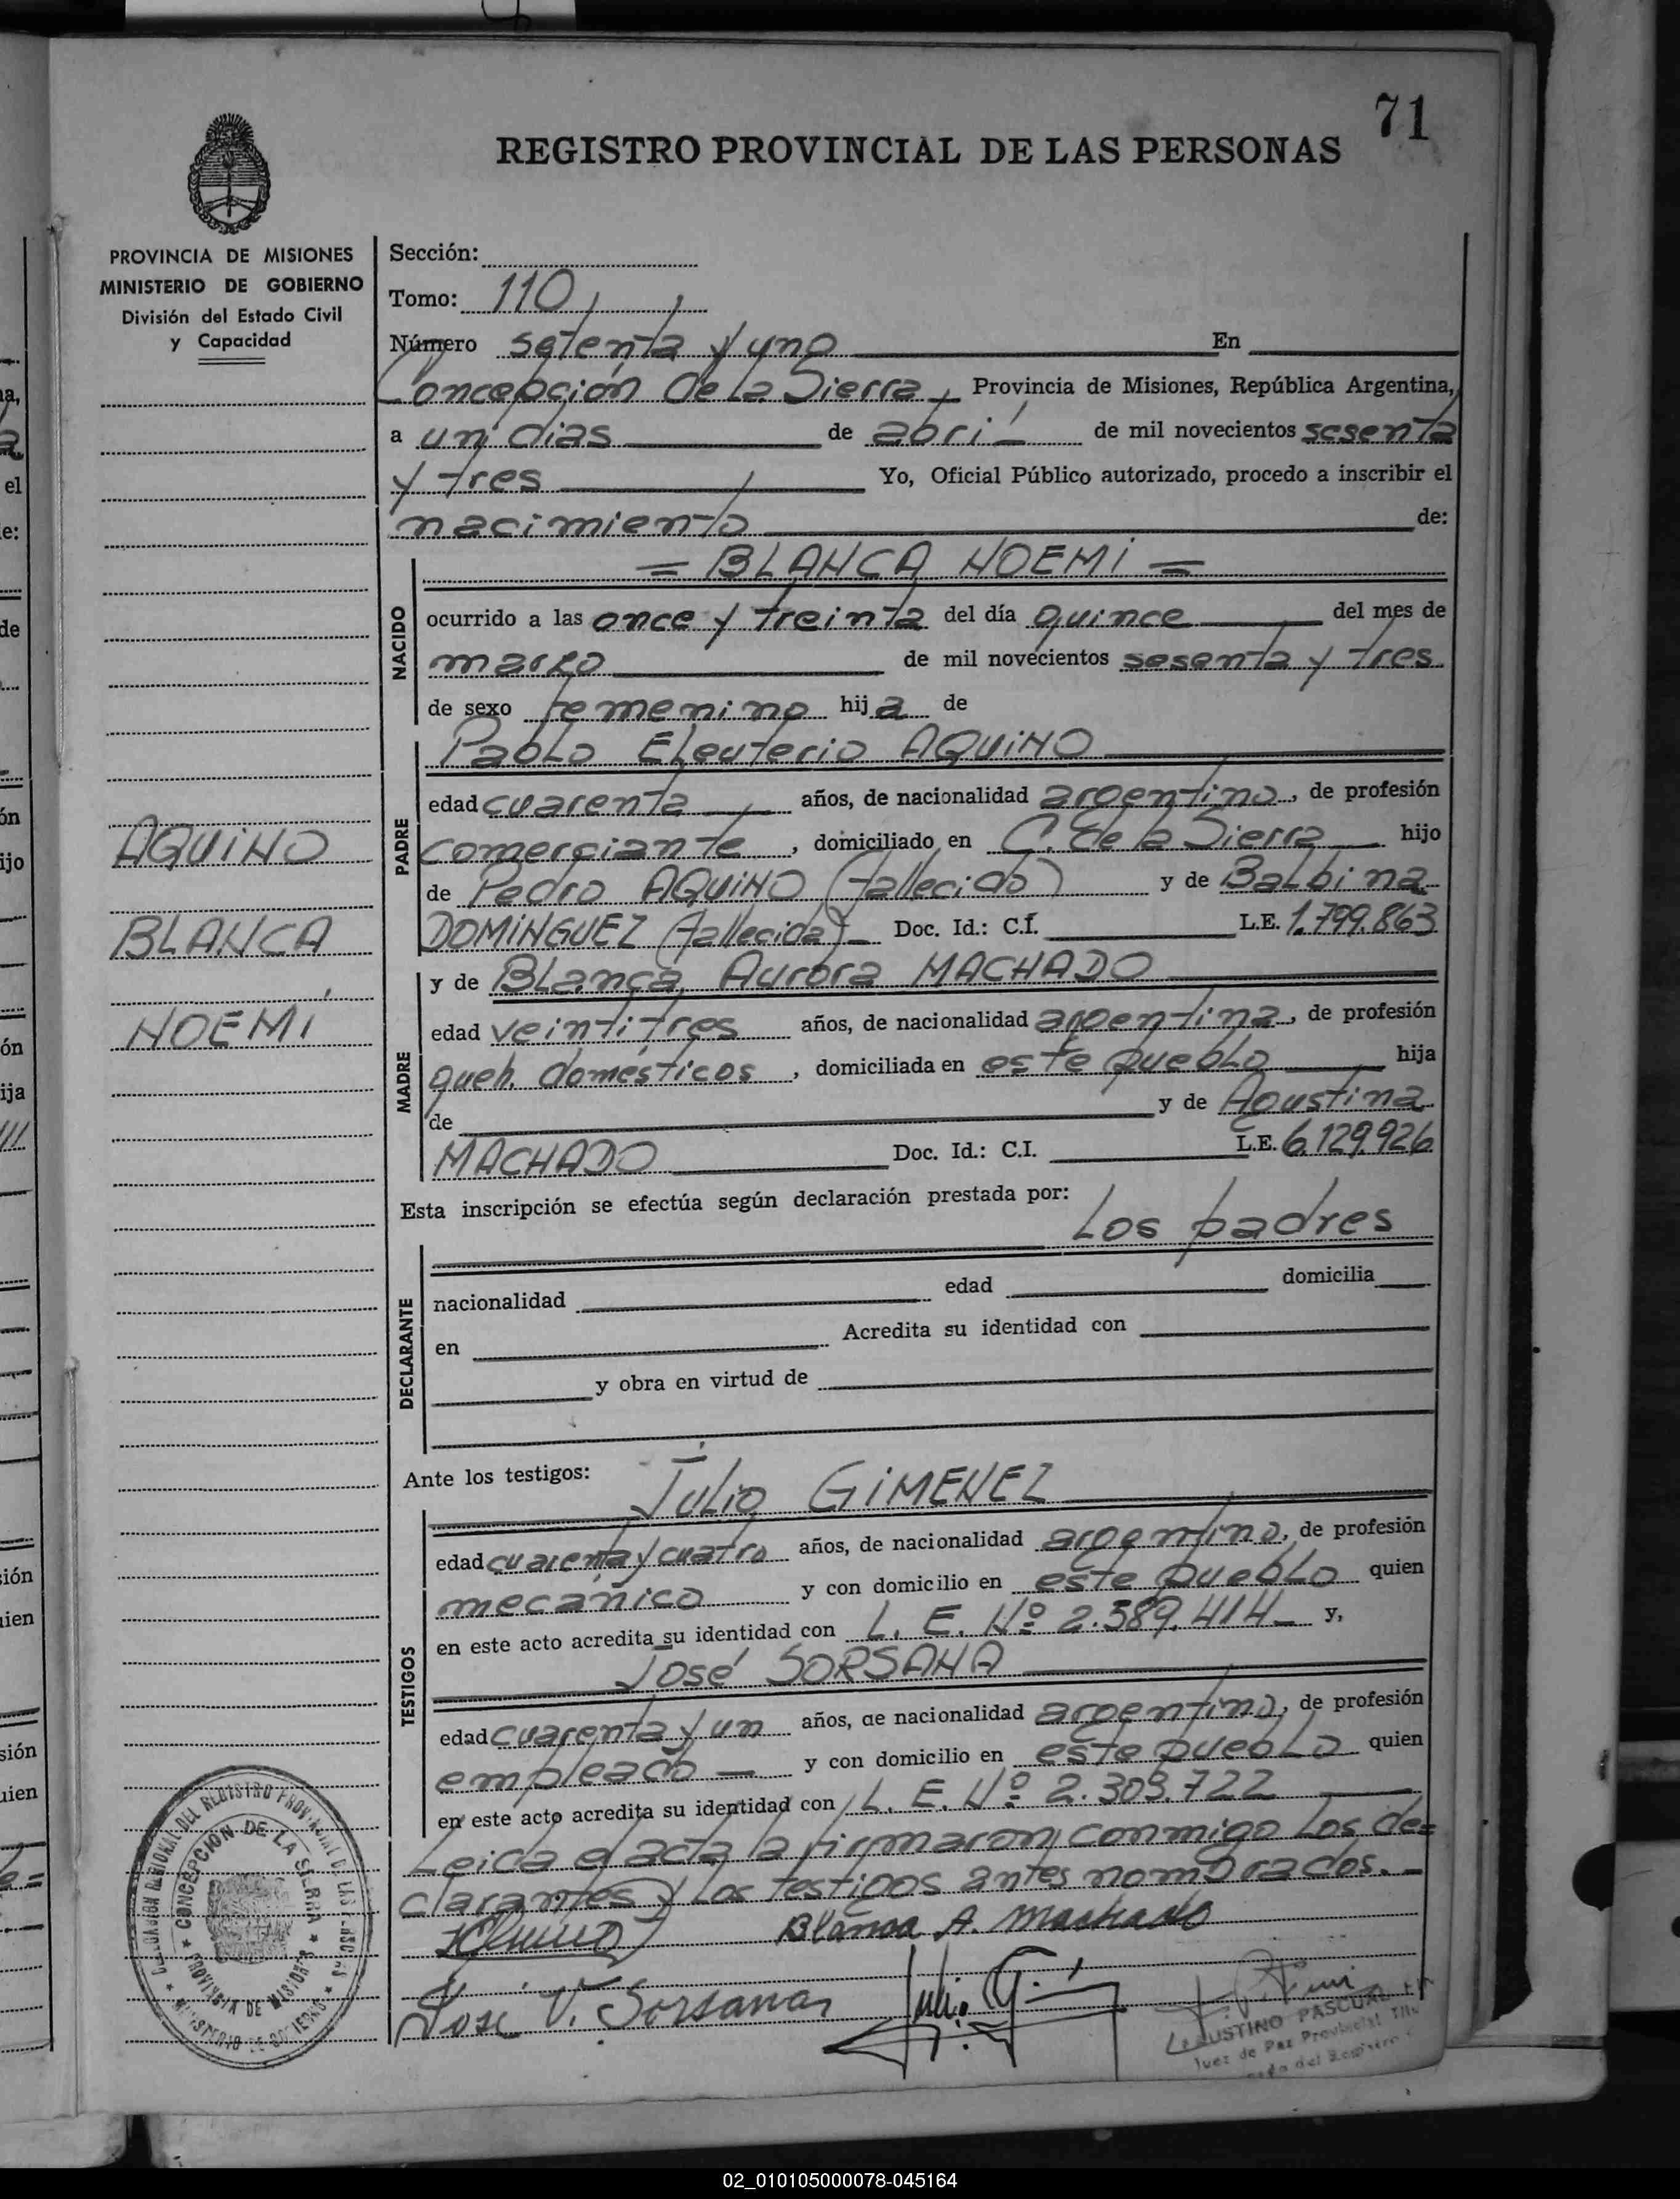 71
REGISTRO PROVINCIAL DE LAS PERSONAS
PROVINCIA DE MISIONES
MINISTERIO DE GOBIERNO
División del Estado Civil
y Capacidad
AQUINO
BLANCA
NOEMI
Sección:
Tomo: 110
Número setenta y uno En
Concepción de la Sierra, Provincia de Misiones, República Argentina,
a un dias de abril de mil novecientos sesenta
y tres Yo, Oficial Público autorizado, procedo a inscribir el
nacimiento de:
= BLANCA NOEMI =
NACIDO
ocurrido a las once y treinta del día quince del mes de
marzo de mil novecientos sesenta y tres
de sexo femenino hija de
Pablo Eleuterio AQUINO
PADRE
edad cuarenta años, de nacionalidad argentino, de profesión
comerciante, domiciliado en C. de la Sierra hijo
de Pedro AQUINO (fallecido) y de Balbina
DOMINGUEZ (fallecida) Doc. Id.: C.I. L.E. 1.799.863
y de Blanca Aurora MACHADO
MADRE
edad veintitres años, de nacionalidad argentina, de profesión
queh. domésticos, domiciliada en este pueblo hija
de y de Agustina
MACHADO Doc. Id.: C.I. L.E. 6.129.926
Esta inscripción se efectúa según declaración prestada por:
Los padres
DECLARANTE
nacionalidad edad domicilia
en Acredita su identidad con
y obra en virtud de
Ante los testigos:
Julio GIMENEZ
TESTIGOS
edad cuarenta y cuatro años, de nacionalidad argentino, de profesión
mecánico y con domicilio en este pueblo quien
en este acto acredita su identidad con L. E. Nº 2.589.414 y,
José SORSANA
edad cuarenta y un años, de nacionalidad argentino, de profesión
empleado y con domicilio en este pueblo quien
en este acto acredita su identidad con L. E. Nº 2.303.722
Leida el acta la firmaron conmigo los de=
clarantes y los testigos antes nombrados.
Blanca A. Machado
Jose V. Sorsana
Julio
PASCUAL
Juez de Paz Provincial
del Registro
CONCEPCION DE LA SIERRA
PROVINCIA DE MISIONES
DELEGACION REGIONAL DEL REGISTRO PROVINCIAL DE LAS PERSONAS
MINISTERIO DE GOBIERNO
02_010105000078-045164